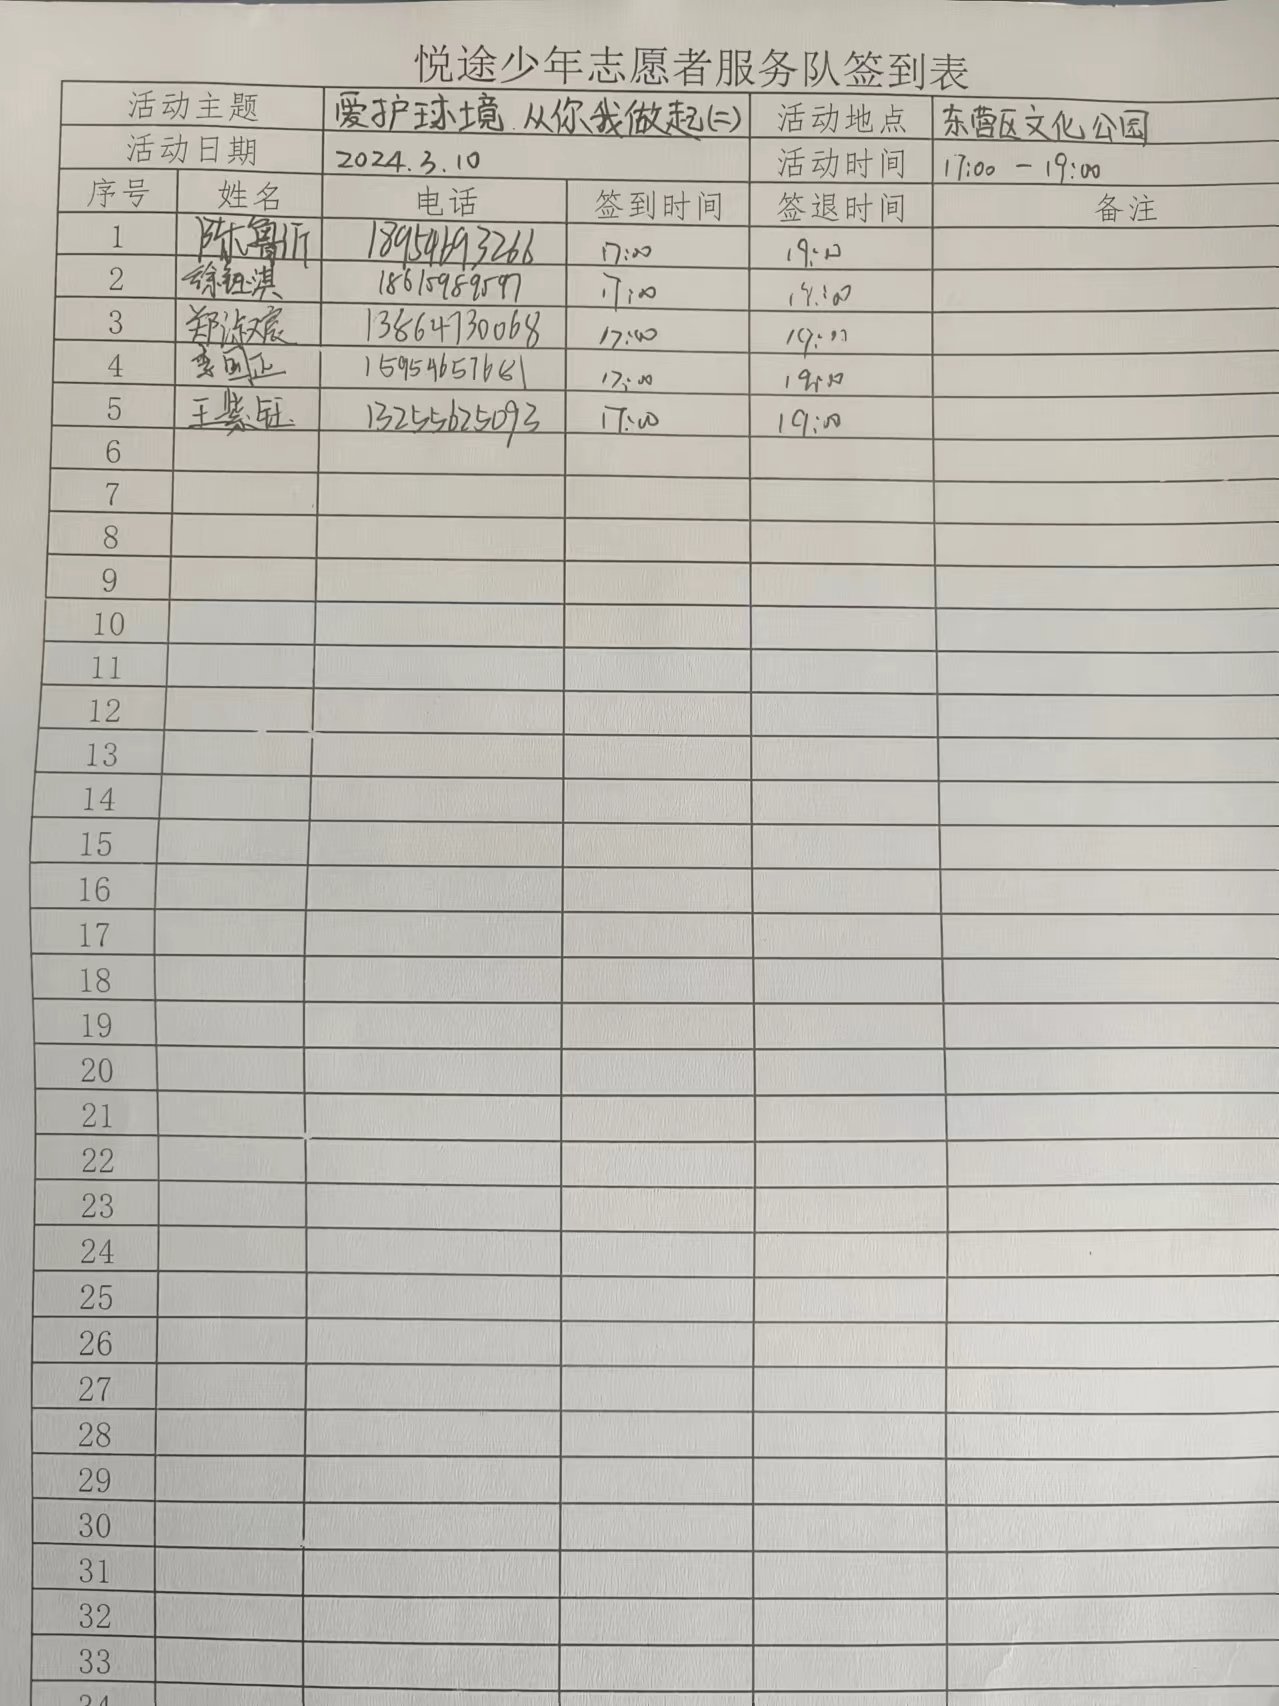 悦途少年志愿者服务队签到表
活动主题 爱护球境 从你我做起(二) 活动地点 东营区文化公园
活动日期 2024.3.10 活动时间 17:00 - 19:00
序号 姓名 电话 签到时间 签退时间 备注
1 陈鲁 18954693266 17:00 19:00
2 徐钰淇 18615989597 17:00 19:00
3 郑淑宸 13864730068 17:00 19:00
4 李国正 15954657681 17:00 19:00
5 王紫钰 13255625093 17:00 19:00
6
7
8
9
10
11
12
13
14
15
16
17
18
19
20
21
22
23
24
25
26
27
28
29
30
31
32
33
34